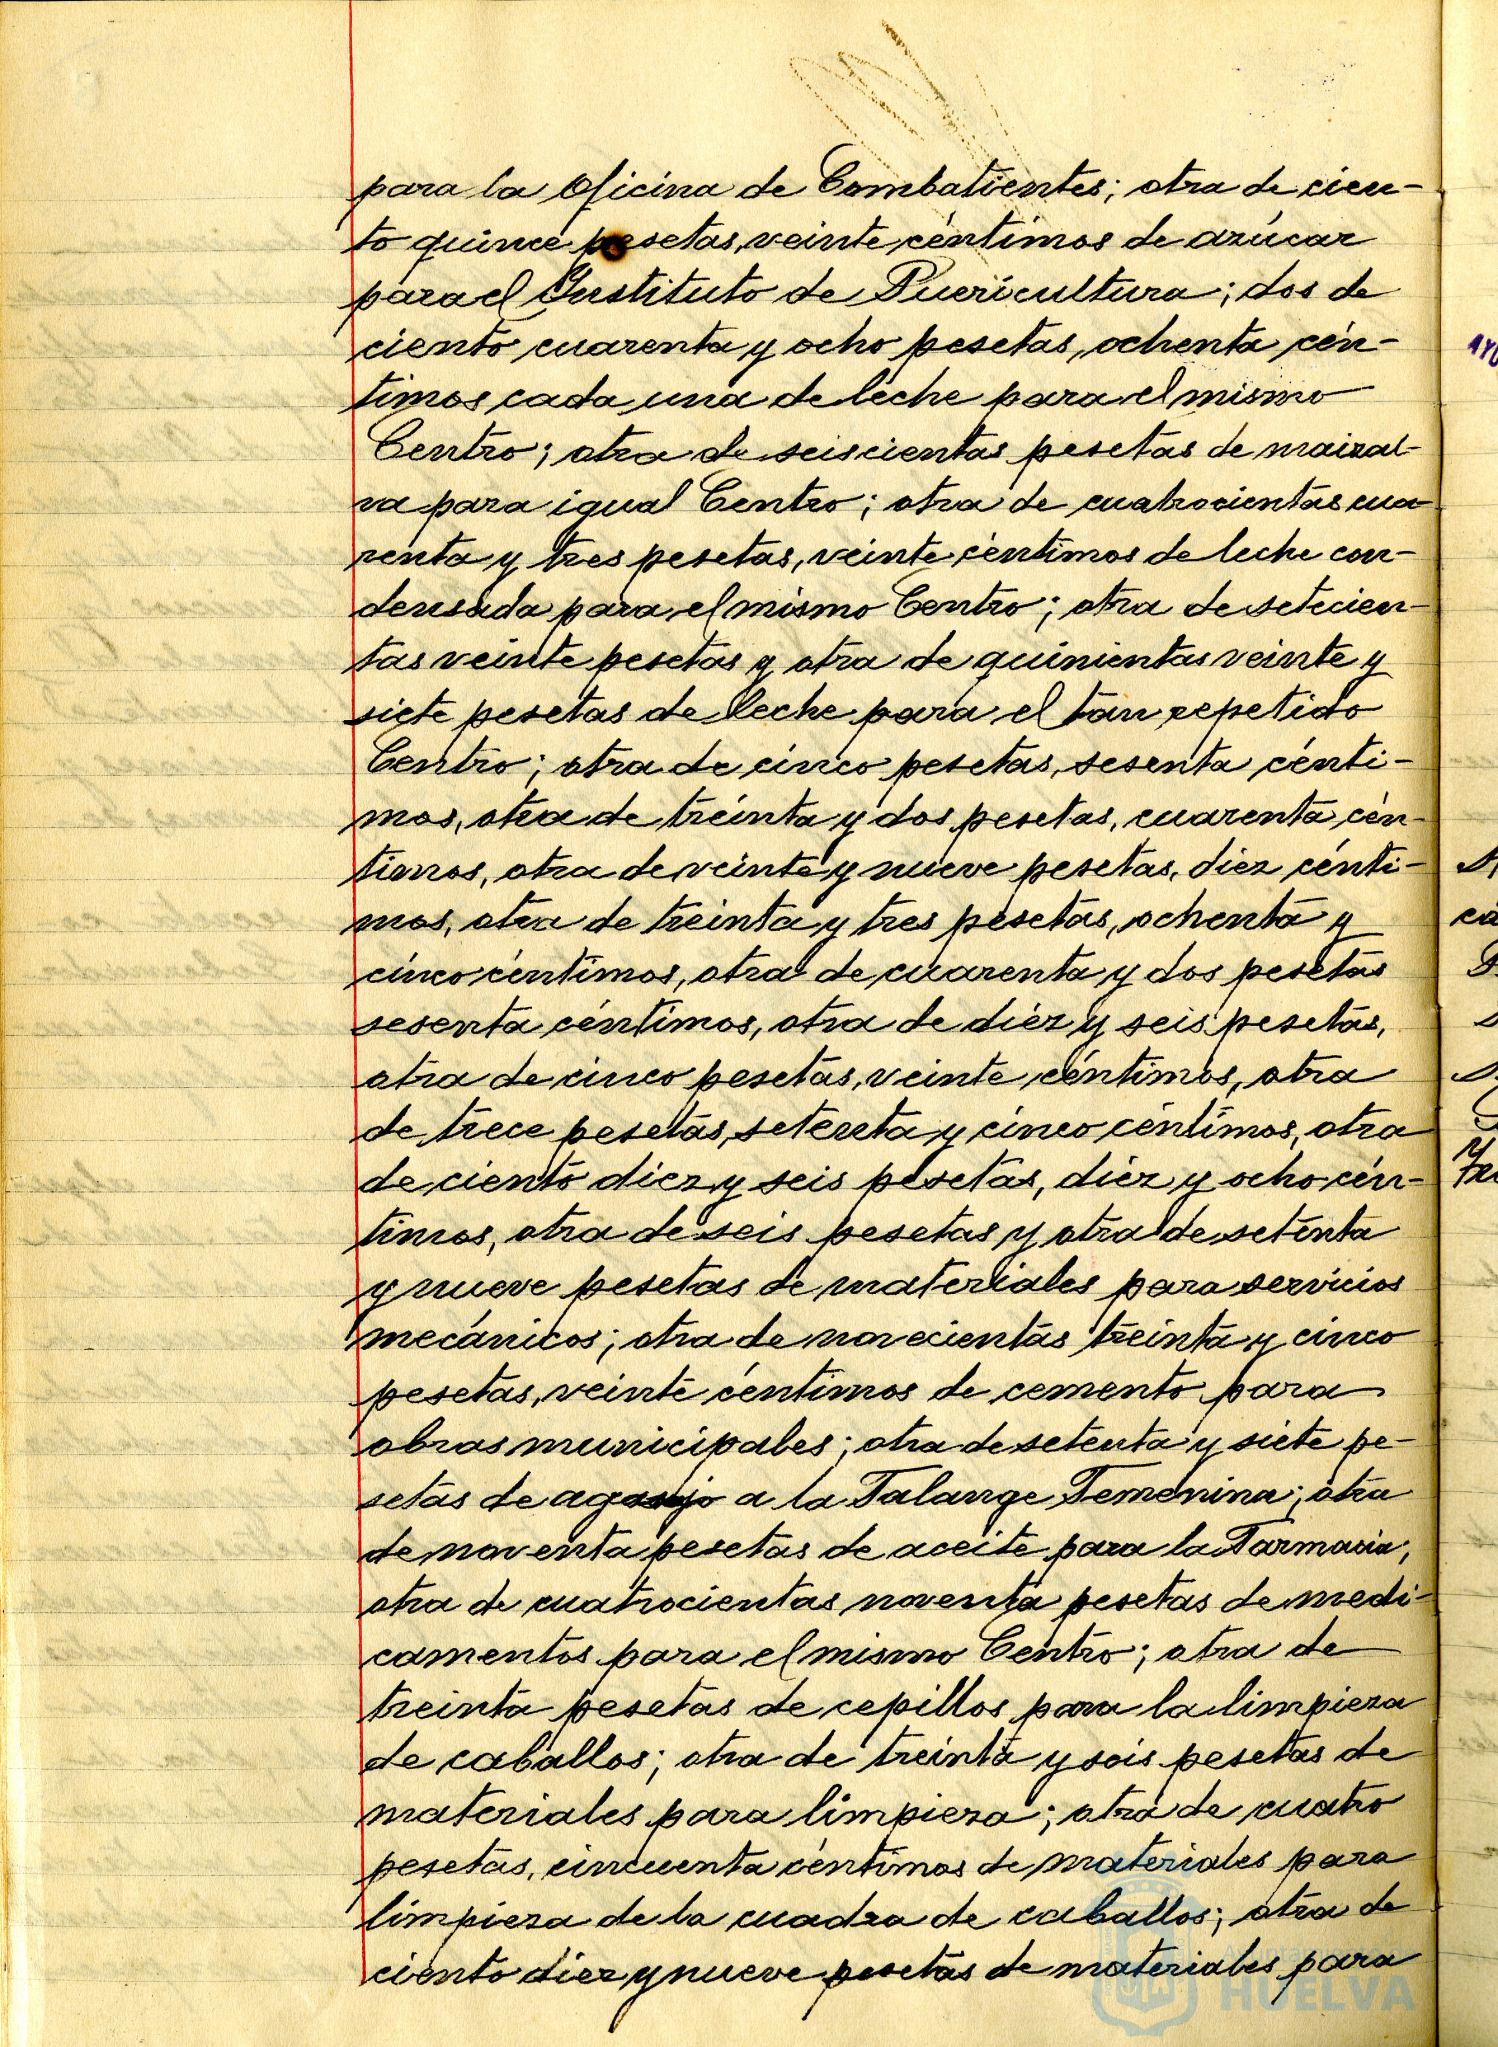 para la Oficina de Combatientes; otra de cien-
to quince pesetas, veinte céntimos de azúcar
para el Instituto de Puericultura; dos de
ciento cuarenta y ocho pesetas, ochenta cén-
timos cada una de leche para el mismo
Centro; otra de seiscientas pesetas de maizal-
va para igual Centro; otra de cuatrocientas cua-
renta y tres pesetas, veinte céntimos de leche con-
densada para el mismo Centro; otra de setecien-
tas veinte pesetas y otra de quinientas veinte y
siete pesetas de leche para el tan repetido
Centro; otra de cinco pesetas, sesenta cénti-
mos, otra de treinta y dos pesetas, cuarenta cén-
timos, otra de veinte y nueve pesetas, diez cénti-
mos, otra de treinta y tres pesetas, ochenta y
cinco céntimos, otra de cuarenta y dos pesetas
sesenta céntimos, otra de diez y seis pesetas,
otra de cinco pesetas, veinte céntimos, otra
de trece pesetas, setenta y cinco céntimos, otra
de ciento diez y seis pesetas, diez y ocho cén-
timos, otra de seis pesetas y otra de setenta
y nueve pesetas de materiales para servicios
mecánicos; otra de novecientas treinta y cinco
pesetas, veinte céntimos de cemento para
obras municipales; otra de setenta y siete pe-
setas de agasajo a la Falange Femenina; otra
de noventa pesetas de aceite para la Farmacia;
otra de cuatrocientas noventa pesetas de medi-
camentos para el mismo Centro; otra de
treinta pesetas de cepillos para la limpieza
de caballos; otra de treinta y seis pesetas de
materiales para limpieza; otra de cuatro
pesetas, cincuenta céntimos de materiales para
limpieza de la cuadra de caballos; otra de
ciento diez y nueve pesetas de materiales para
HUELVA